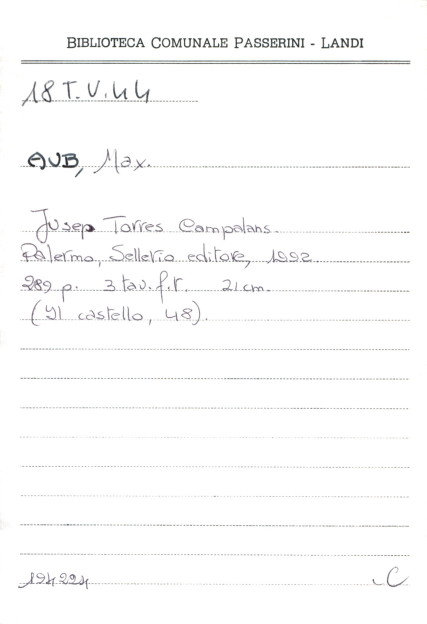 BIBLIOTECA COMUNALE PASSERINI - LANDI
18 T.V.44
AUB, Max.
Jusep Torres Campalans.
Palermo, Sellerio editore, 1992
289 p. 3 tav. f.t. 21 cm.
(Il castello, 48).
194224
C